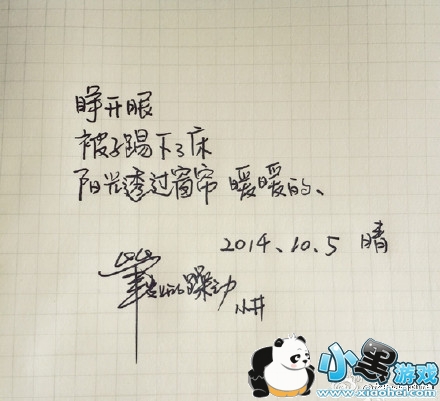 睁开眼
被子踢下了床
阳光透过窗帘 暖暖的、
2014.10.5 晴
的躁动
小井
小黑游戏
www.xiaohei.com